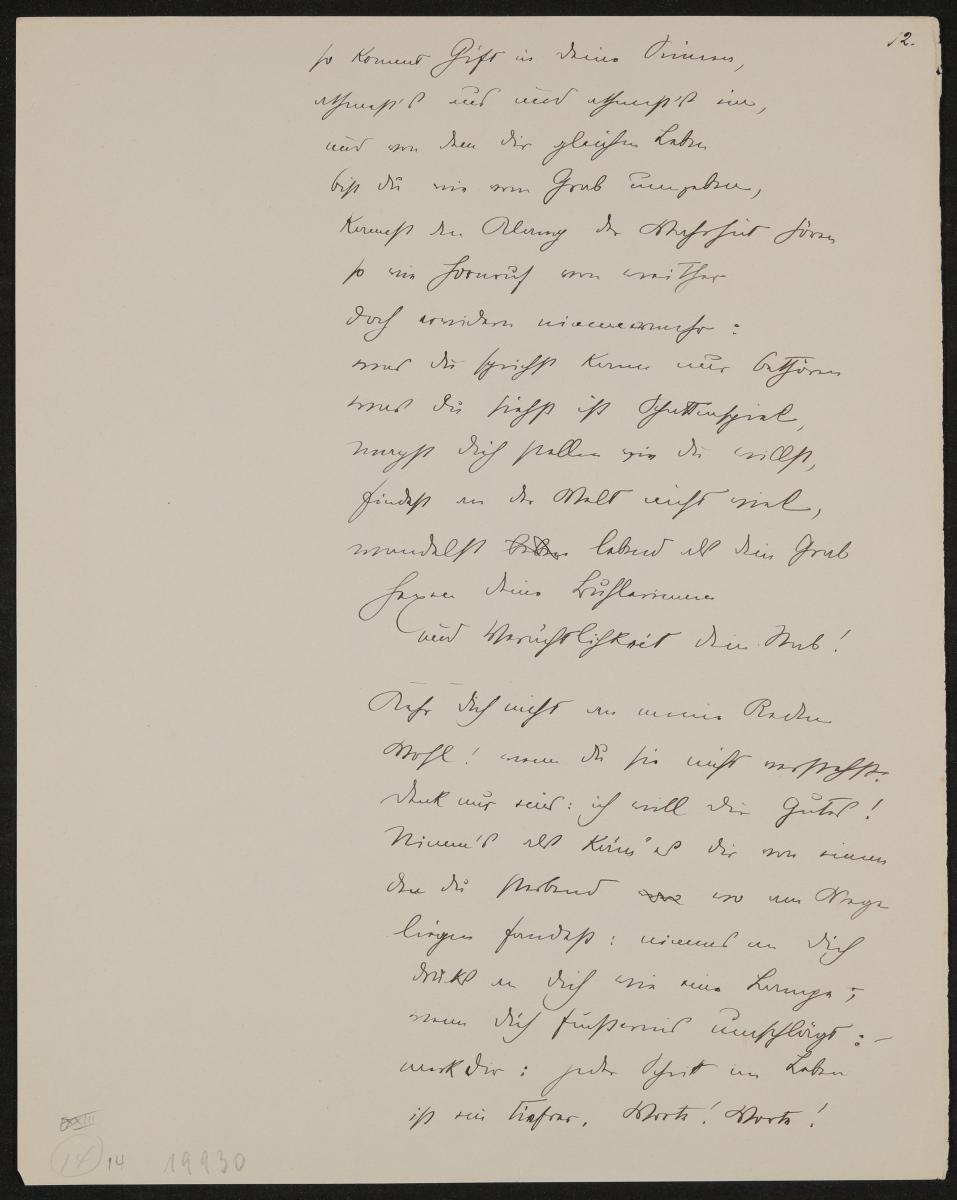 12.
so kommt Gift in deine Sinnen,
athmest's aus und athmest's ein,
und von dem dir gleichen Leben
bist du wie vom Grab umgeben,
Kannst den Klang der Wahrheit hören
so wie Hornruf von weither
doch erwidern nimmermehr:
was du sprichst kann nur bethören
was du siehst ist Schattenspiel,
magst dich stellen wie du willst,
findest an der Welt nicht viel,
wandelst lebend als dein Grab
Hexen deine Buhlerinnen
und Veruchtlichkeit dein Stab!
Kehr dich nicht an meine Reden
Wohl! wenn du sie nicht verstehst.
denk nur eins: ich will dir Gutes!
Nimm's als käm' es dir von einem
den du sterbend wo am Wege
liegen fandest: nimms an dich
drück's an dich wie eine Lampe,
wenn dich Finsternis umschlägt: –
merk dir: jeder Schritt im Leben
ist ein tiefrer. Worte! Worte!
14 14 19930